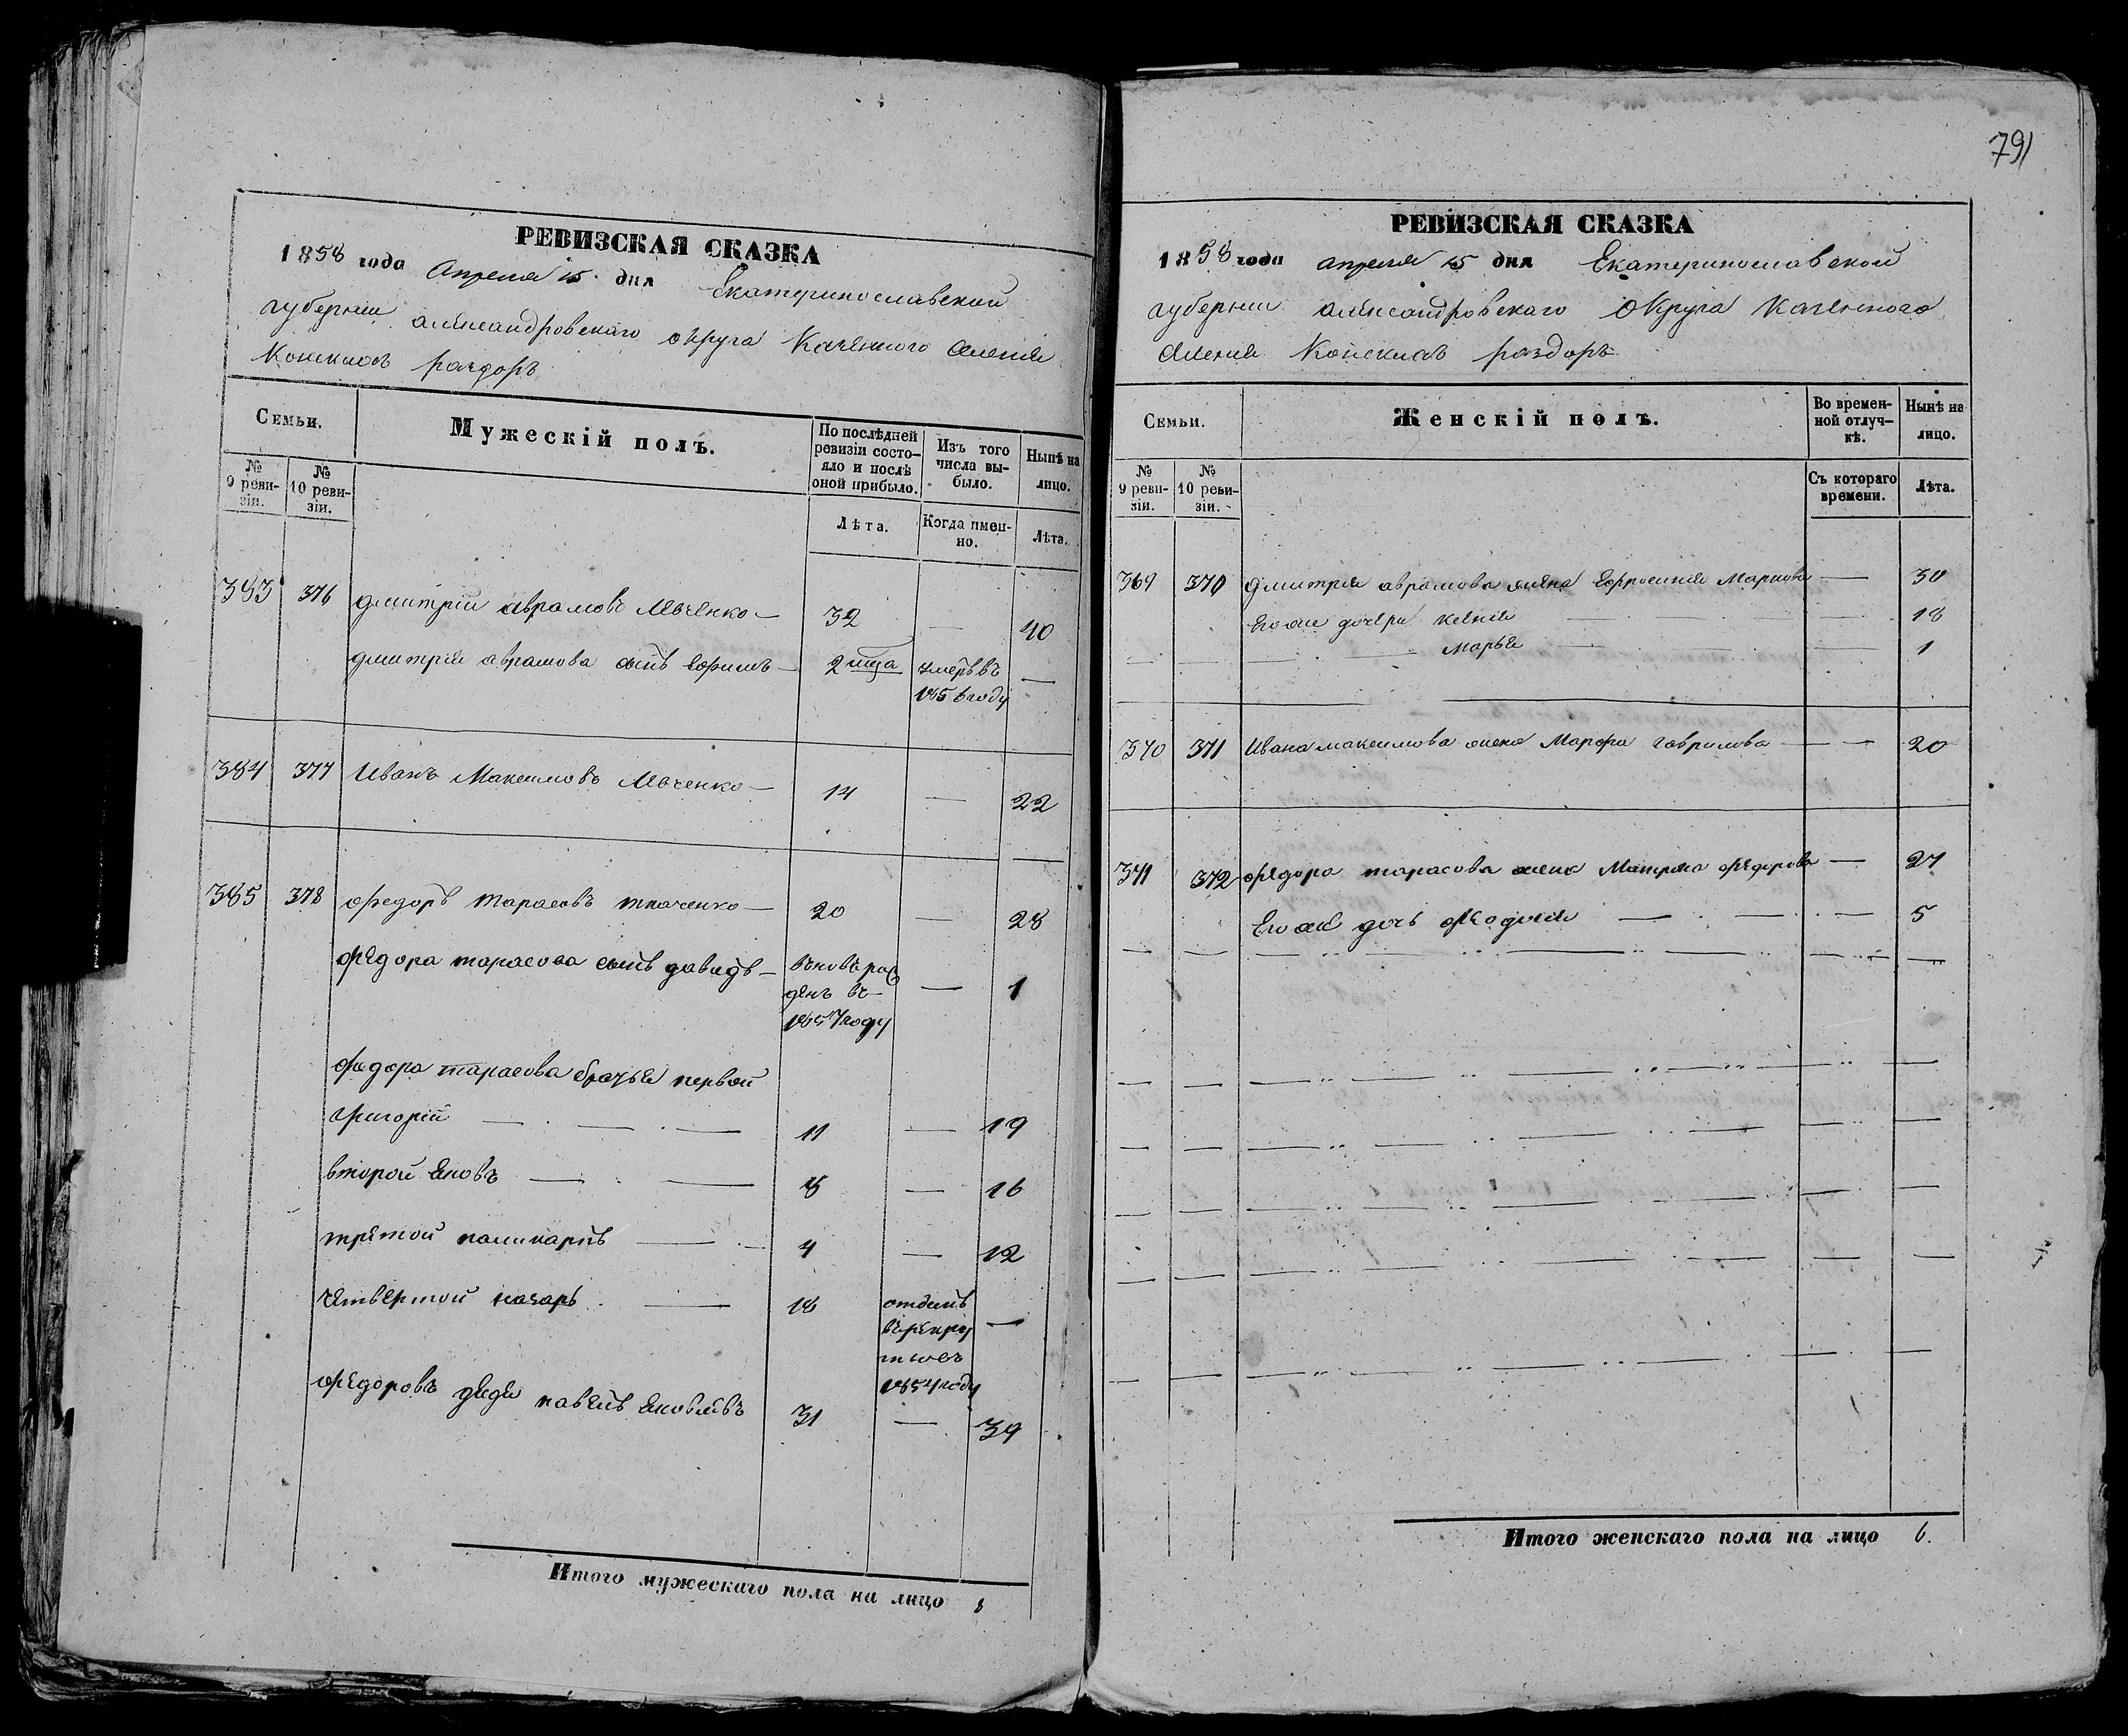 РЕВИЗСКАЯ СКАЗКА
1858 года Апреля 15 дня Екатеринославской
губернии александровскаго округа Казенного Селения
Конскихъ раздоръ
Семьи.
Мужескій полъ.
По послѣдней ревизіи состояло и послѣ оной прибыло.
Изъ того числа выбыло.
Нынѣ на лицо.
№ 9 ревизіи.
№ 10 ревизіи.
Лѣта.
Когда именно.
Лѣта.
383 376 дмитрій аврамовъ Левченко — 32 — 40
дмитрія аврамова сынъ Ефимъ — 2 мца умеръ въ —
1856 году
384 377 Иванъ Максимовъ Левченко — 14 — 22
385 378 федоръ тарасовъ ткаченко — 20 — 28
федора тарасова сынъ давидъ — вновь рож
денъ въ — — 1
1857 году
федора тарасова братья первой
григорій — 11 — 19
второй Яковъ — 8 — 16
третой поликарпъ — 4 — 12
четвертой назаръ — 18 отданъ —
въ рекру
ты въ
1854 году
федоровъ дядя павелъ Яковлевъ 31 — 39
Итого мужескаго пола на лицо 8
791
РЕВИЗСКАЯ СКАЗКА
1858 года апреля 15 дня Екатеринославской
губернии александровскаго Округа Казенного
Селения Конскихъ раздоръ
Семьи.
Женскій полъ.
Во временной отлучкѣ.
Нынѣ на лицо.
№ 9 ревизіи.
№ 10 ревизіи.
Съ котораго времени.
Лѣта.
369 370 дмитрия аврамова жена Ефросиния Маркова — 30
Его же дочери Ксения — 18
Марья — 1
370 371 Ивана максимова жена Марфа гаврилова — 20
371 372 федора тарасова жена Матрена федорова — 27
Его же дочь феодосия — 5
Итого женскаго пола на лицо 6.